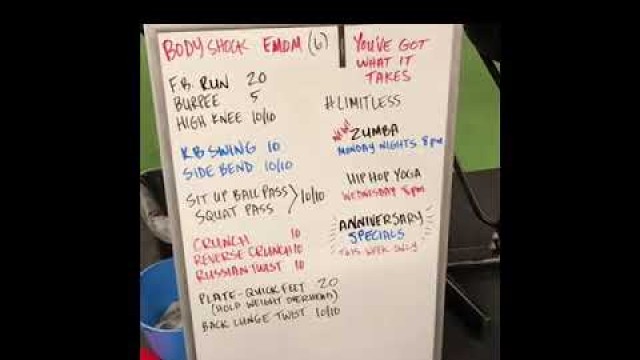 BODY SHOCK EMOM (6)
F.B. RUN 20
BURPEE 5
HIGH KNEE 10/10
KB SWING 10
SIDE BEND 10/10
SIT UP BALL PASS
SQUAT PASS
10/10
CRUNCH 10
REVERSE CRUNCH 10
RUSSIAN TWIST 10
PLATE - QUICK FEET 20
(HOLD WEIGHT OVERHEAD)
BACK LUNGE TWIST 10/10
YOU'VE GOT
WHAT IT
TAKES
#LIMITLESS
NEW!
ZUMBA
MONDAY NIGHTS 8pm
HIP HOP YOGA
WEDNESDAY 8pm
ANNIVERSARY
SPECIALS
THIS WEEK ONLY